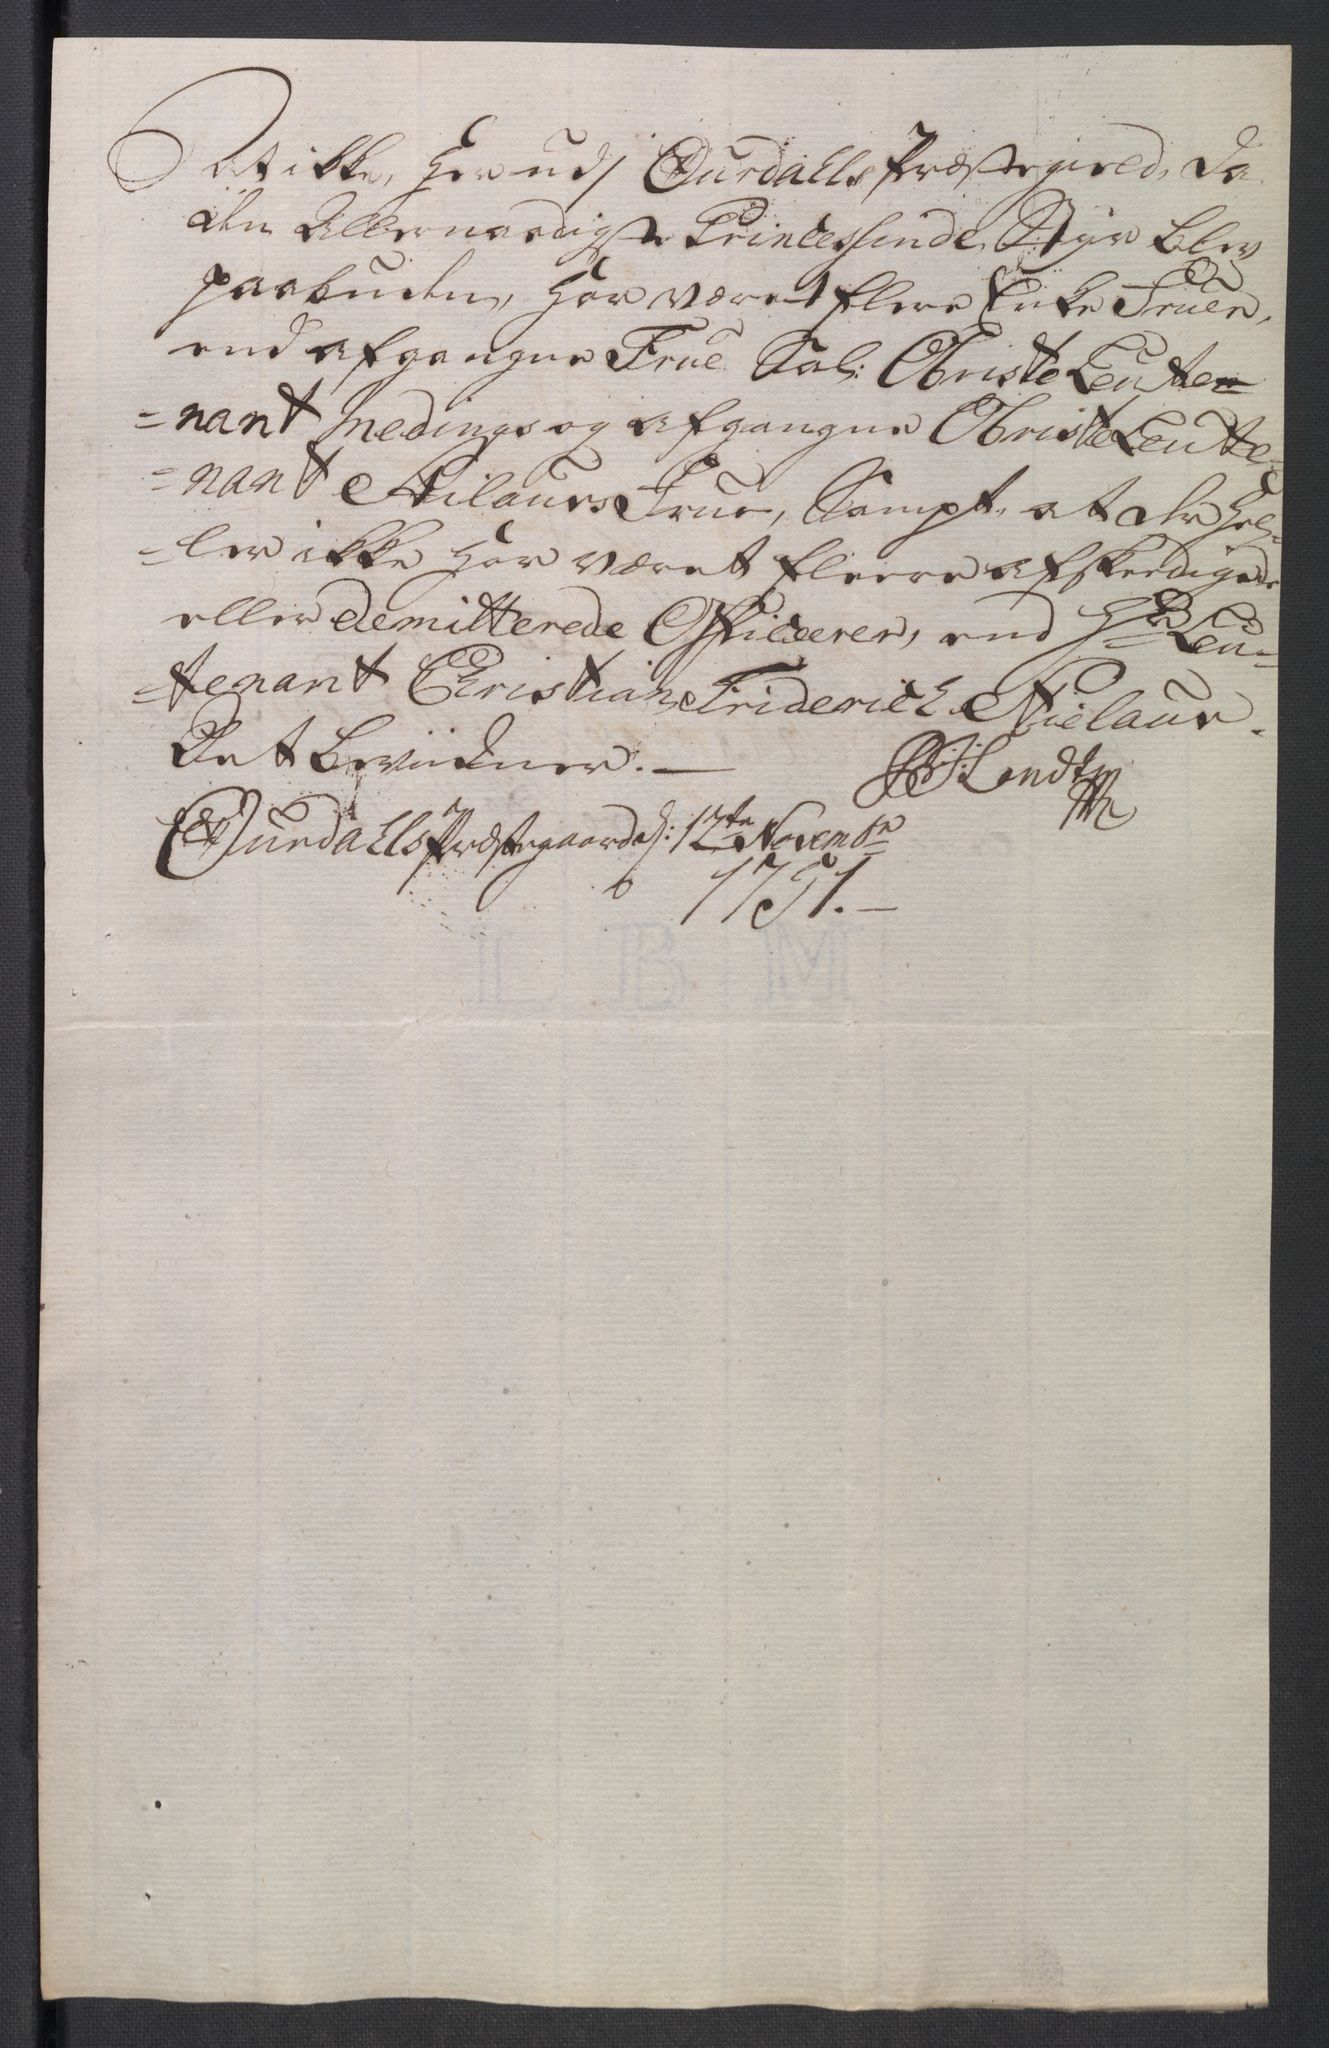 At ikke, her udj Ourdahls Præstegield, da
den Allernaadigste Princessinde Styr blev
paabuden, har været flere Enke Fruer,
end afgangne Frue Sal: Obriste Leuten-
=nant Medings og afgangne Obriste Leute-
=nant Nilaurs Frue, Sampt, at der Hel-
=ler ikke har været fleere afskeedigede
eller demitterede Officerer, end Hr Leu-
=tenant Christian Friderich Nielaur.
Det bevidner. —
Ourdahls Præstegaard d: 12te Novembr
1751. —